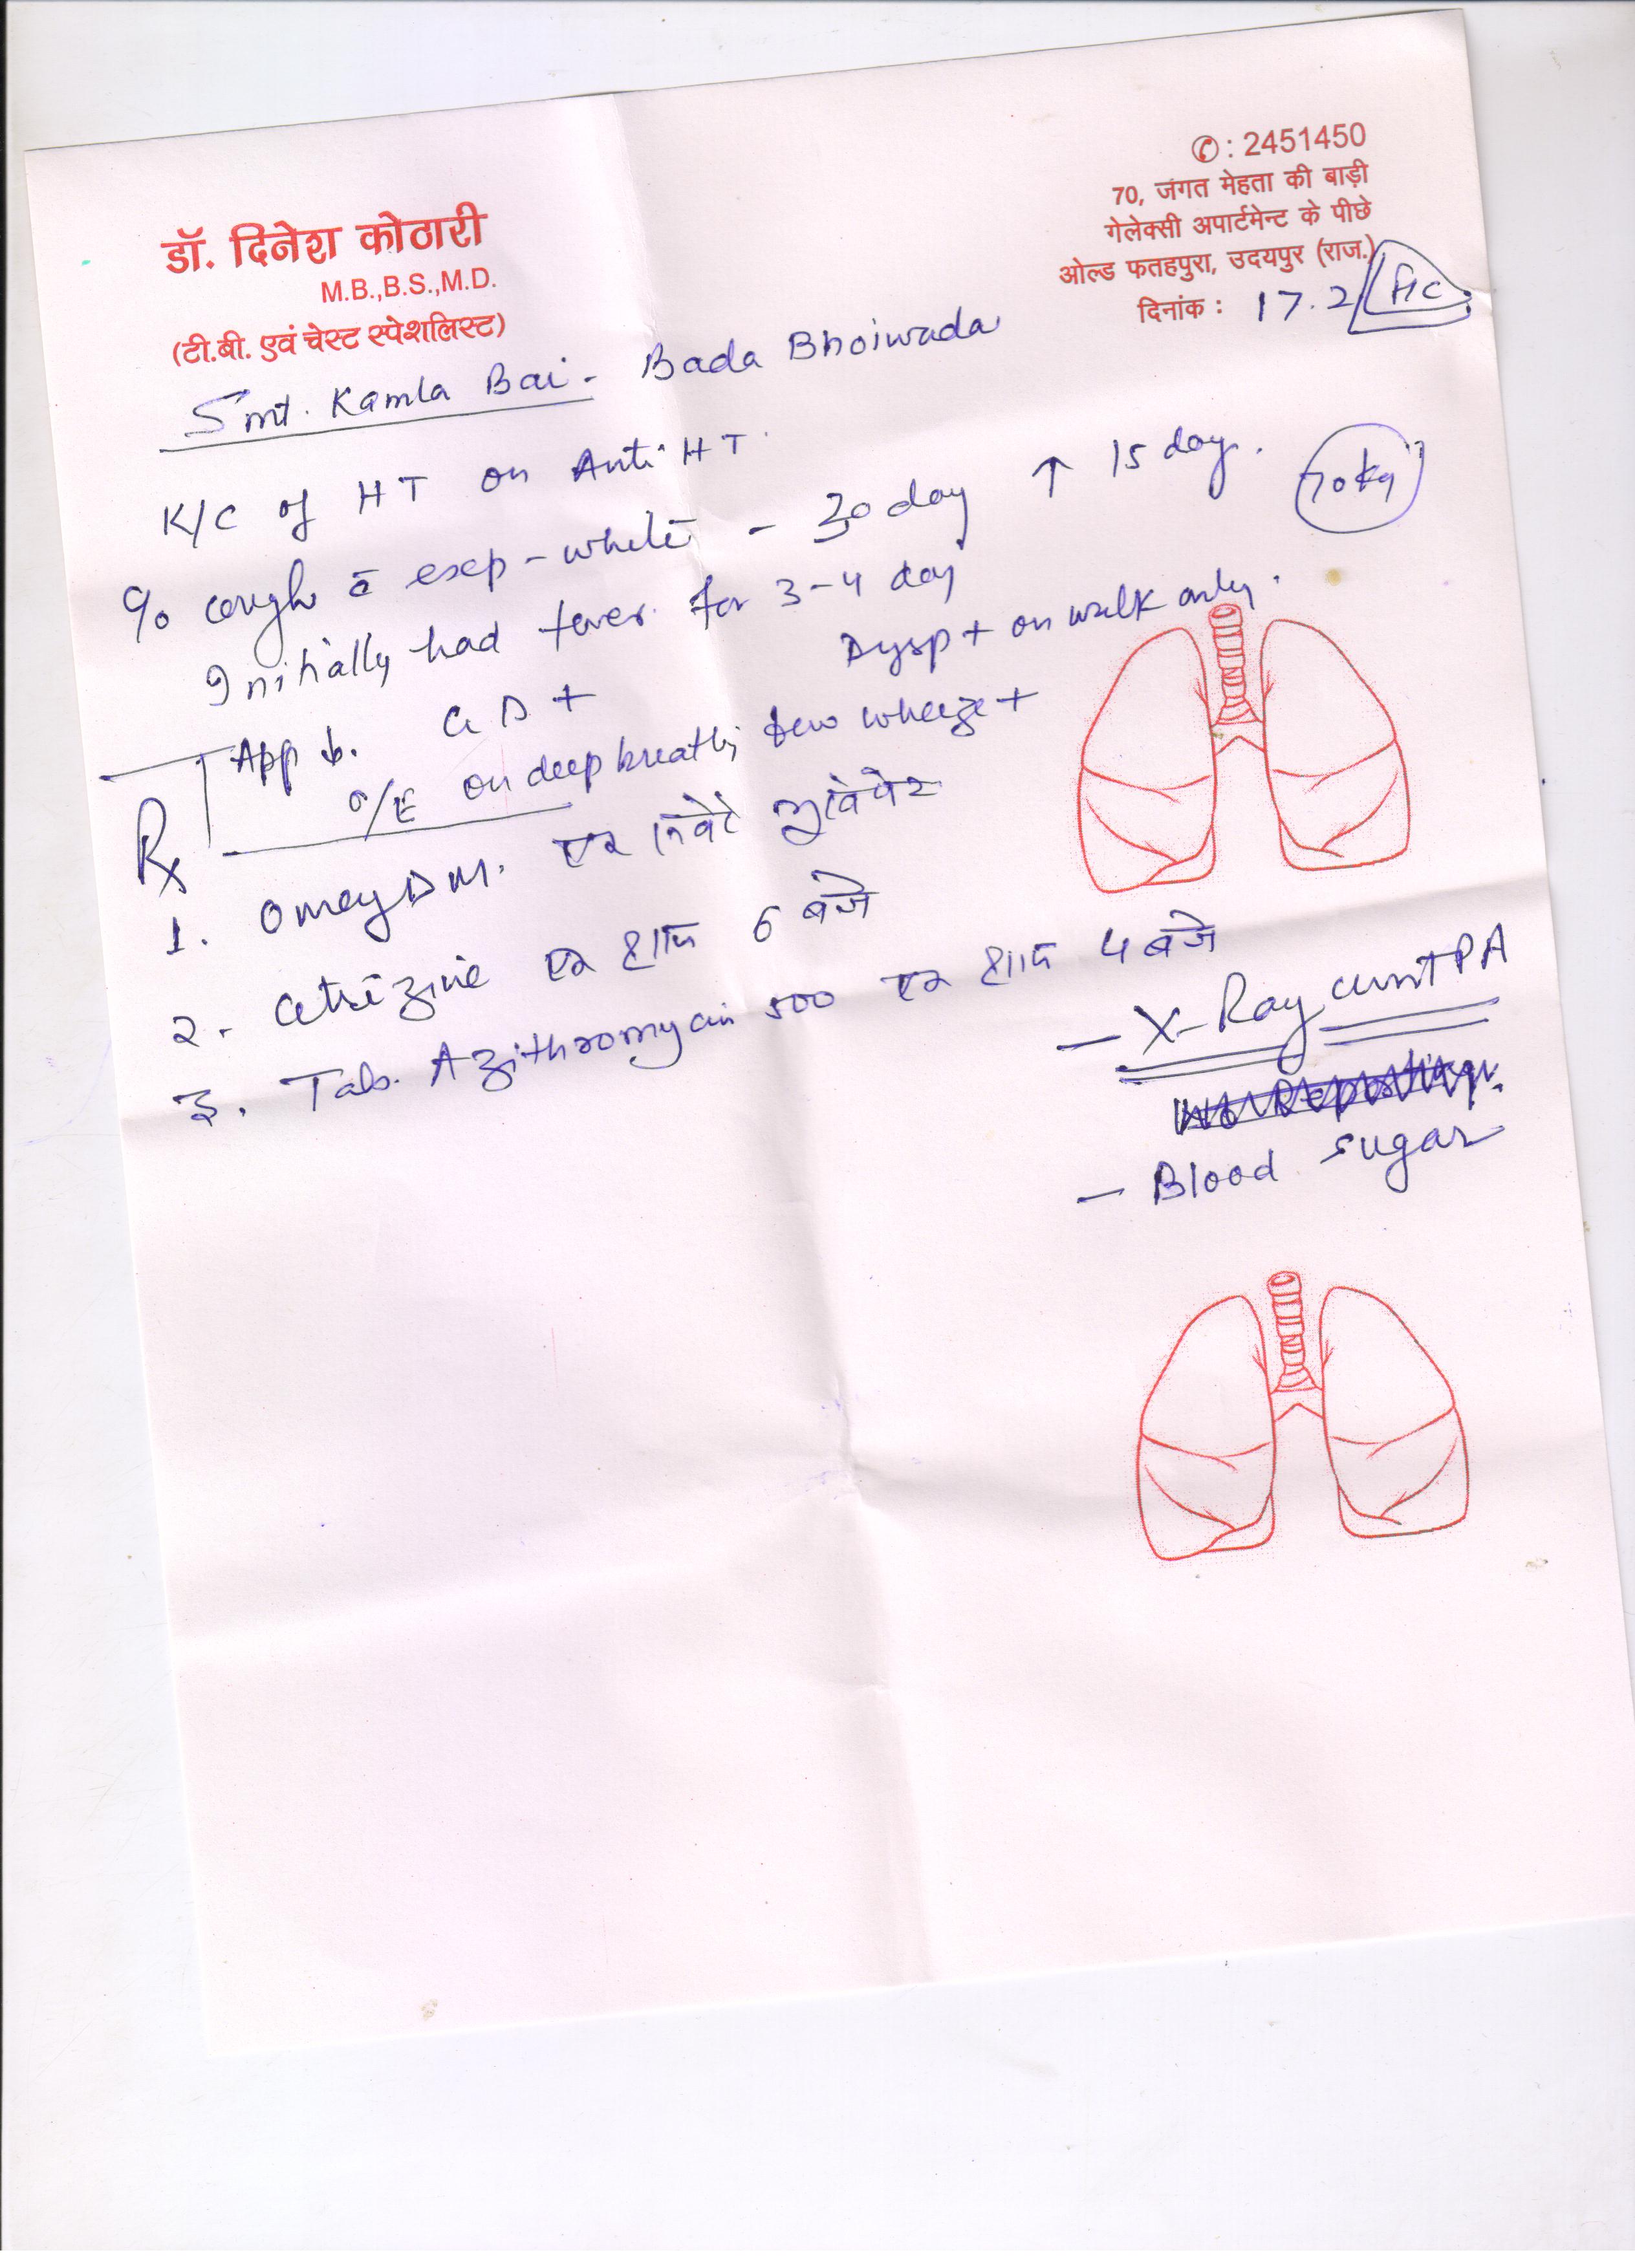 ✆ : 2451450
70, जगत मेहता की बाड़ी
गेलेक्सी अपार्टमेन्ट के पीछे
ओल्ड फतहपुरा, उदयपुर (राज.)
दिनांक : 17.2
डॉ. दिनेश कोठारी
M.B.,B.S.,M.D.
(टी.बी. एवं चेस्ट स्पेशलिस्ट)
Smt. Kamla Bai - Bada Bhoiwada
K/C of HT on Anti-HT.
70 kg
C/o cough c̄ exp - white - 30 day ↑ 15 day.
Initially had fever for 3-4 day
Dysp + on walk only.
App ↓. GD +
O/E on deep breath few wheeze +
Rx
1. Omez DM. एक
2. Cetrizine एक शाम 6 बजे
3. Tab. Azithromycin 500 एक शाम 4 बजे
- X-Ray chest PA
- Blood sugar